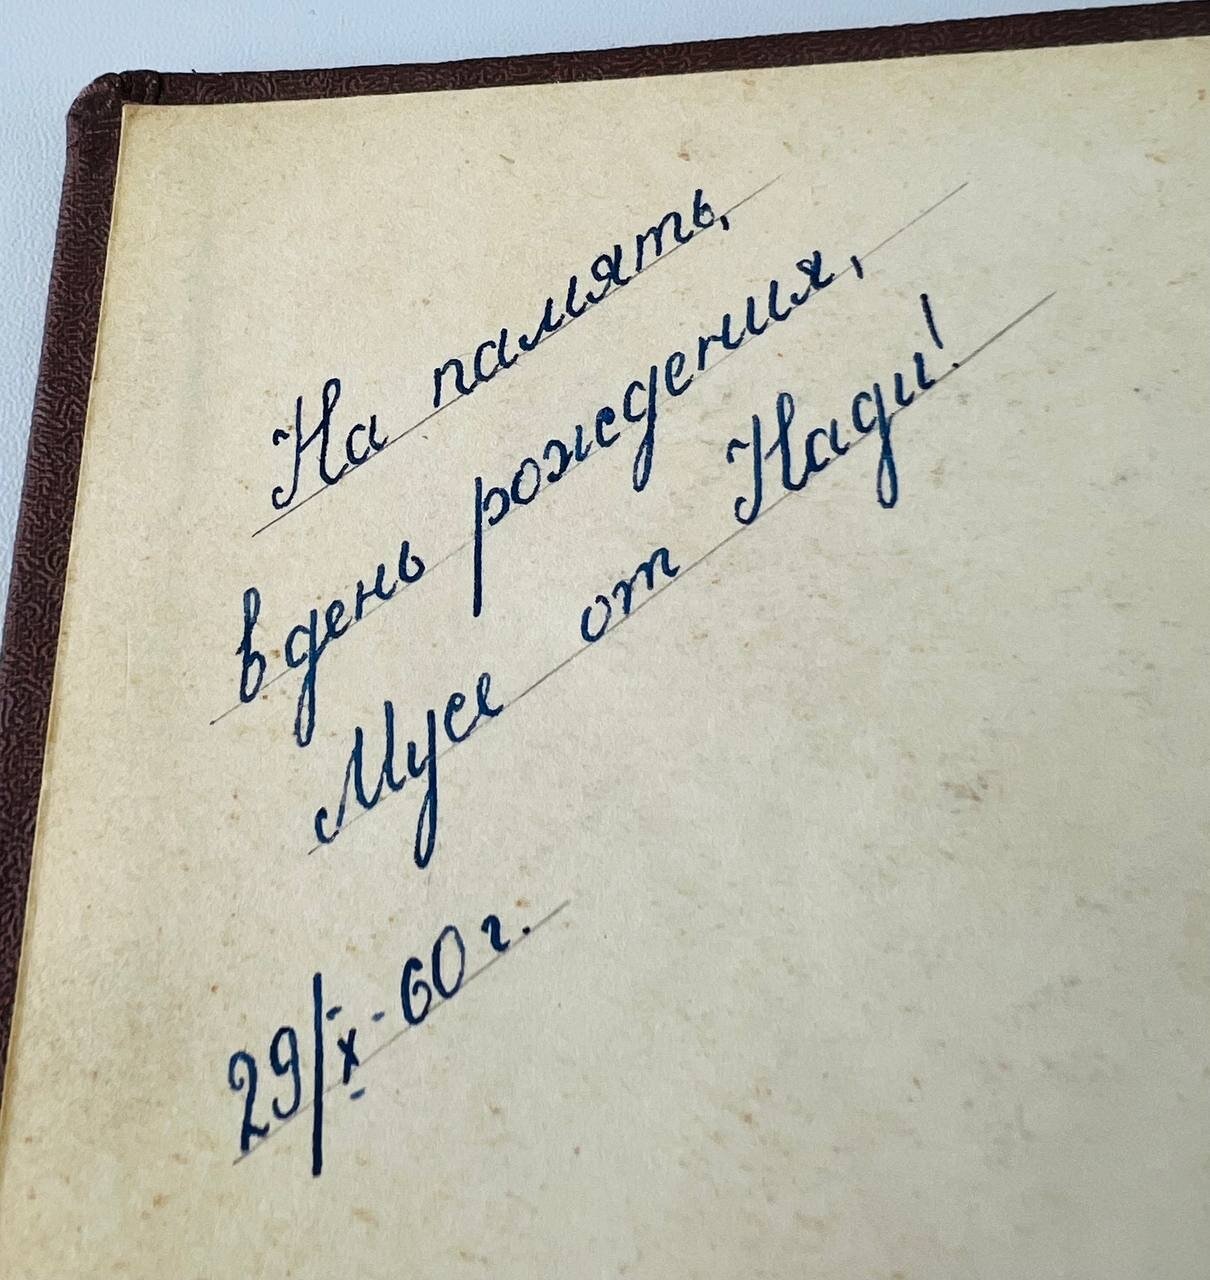 На память,
в день рождения,
Мусе от Нади!
29/X-60 г.